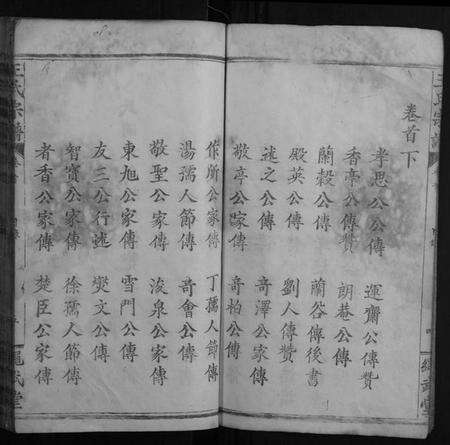 卷首下
孝思公公傳
運齋公傳贊
香亭公傳贊
朗菴公傳
蘭穀公傳
蘭谷傳後書
殿英公傳
劉人傳贊
述之公傳
奇澤公家傳
敬亭公家傳
奇柏公傳
作所公家傳
丁孺人節傳
湯孺人節傳
奇會公傳
敬聖公家傳
浚泉公家傳
東旭公家傳
雪門公傳
友三公行述
燮文公傳
智寶公家傳
徐孺人節傳
者香公家傳
楚臣公家傳
王氏宗譜
繩武堂
王氏宗譜
繩武堂